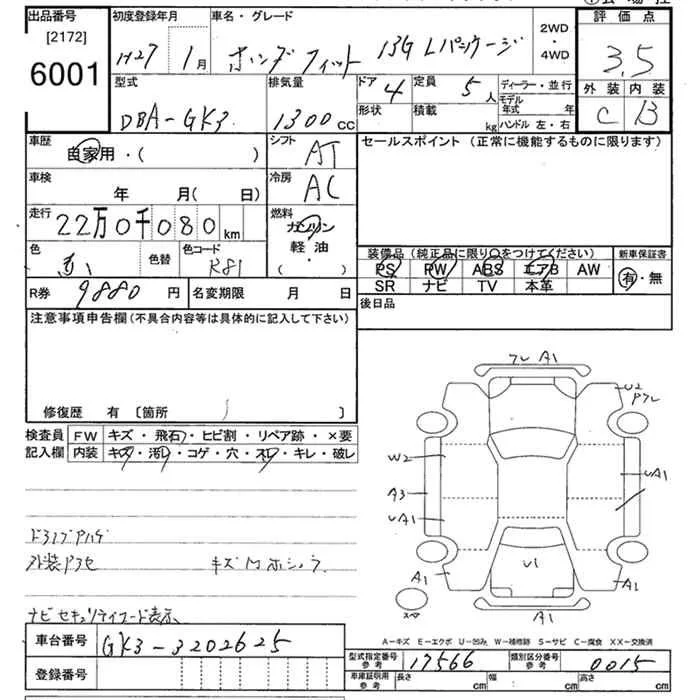 出品番号 初度登録年月 車名・グレード 2WD・4WD 評価点
[2172]
6001
H27年 1月 ホンダ フィット 13G Lパッケージ 3.5
型式 排気量 ドア 4 定員 5人 ディーラー・並行 外装 内装
DBA-GK3 1300cc 形状 積載 kg モデル年式 年 C B
ハンドル 左・右
車歴 自家用・( ) シフト AT セールスポイント (正常に機能するものに限ります)
車検 年 月( 日) 冷房 AC
走行 22万0千080km 燃料 ガソリン
軽・油
( )
色 色替 色コード R81
装備品 (純正品に限り○をつけてください) 新車保証書
PS PW ABS エアB AW 有・無
SR ナビ TV 本革
R券 9880円 名変期限 月 日 後日品
注意事項申告欄 (不具合内容等は具体的に記入して下さい)
修復歴 有 [箇所 ]
検査員 FW キズ・飛石・ヒビ割・リペア跡・×要
記入欄 内装 キズ・汚レ・コゲ・穴・スレ・キレ・破レ
フレ A1
U2
Pフレ
W2
A3
UA1
UA1
A1
U1
A1
A1
スペア
外装
ナビセキュリティコード表示
A-キズ E-エクボ U-凹み W-補修跡 S-サビ C-腐食 XX-交換済
車台番号 GK3-3202625
型式指定番号 参考 17566 類別区分番号 参考 0015
登録番号
車庫証明用 参考 長さ cm 幅 cm 高さ cm